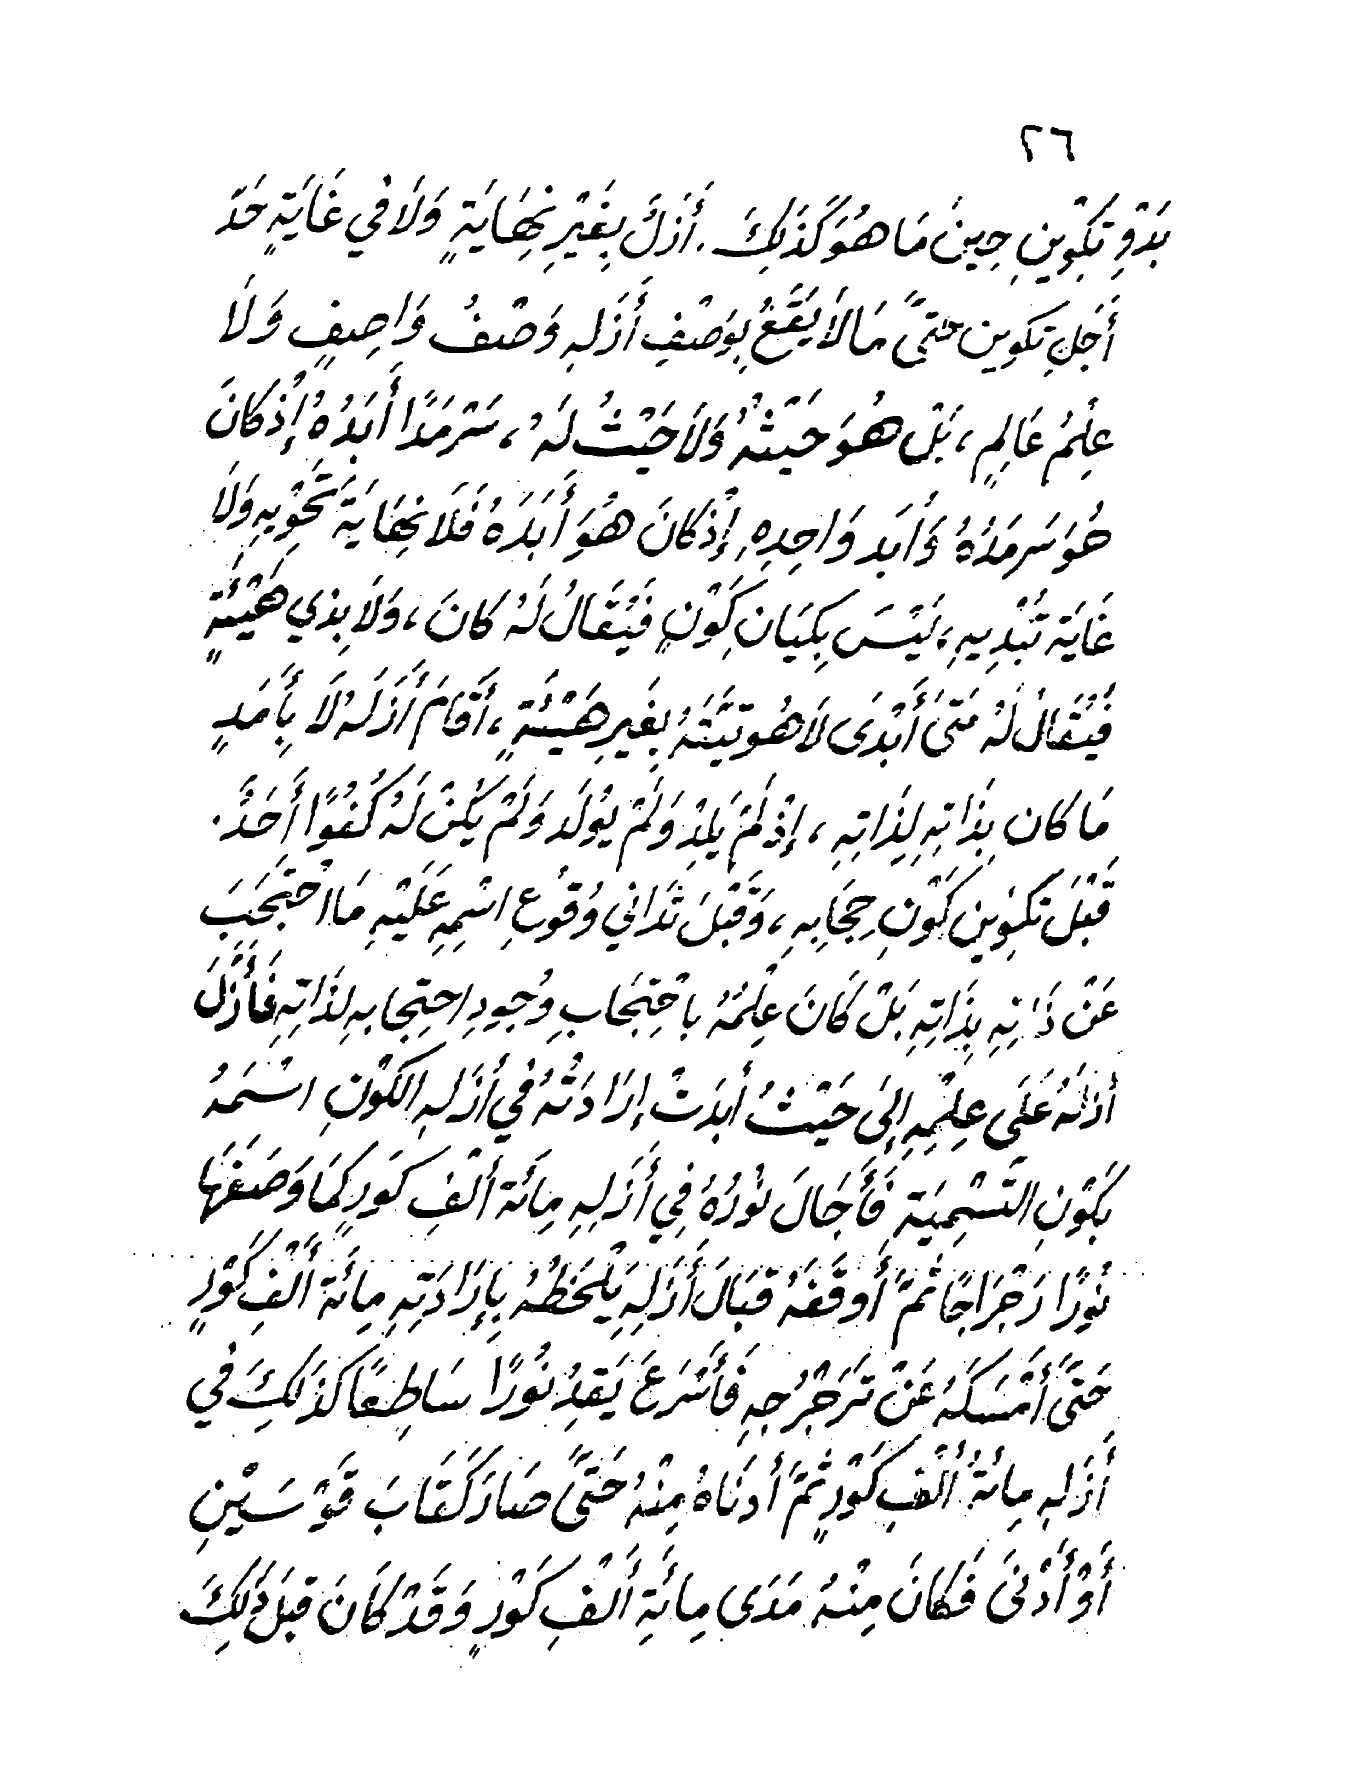 ٢٦
بَدْوِ تَكْوِينِ حِينَ مَا هُوَ كَذَلِكَ. أَزَلٌ بِغَيْرِ نِهَايَةٍ وَلَا فِي غَايَةٍ حَدّ
أَجَلِ تكوين حتَّى مَا لاَ يَقَعُ بِوَصْفِ أَزَلِهِ وَصْفُ وَاصِفٍ وَلَا
عِلْمُ عَالِمٍ، بَلْ هُوَ حَيْثُهُ وَلَا حَيْثُ لَهُ، سَرْمَدًا أَبَدُهُ إِذْ كَانَ
هُوَ سَرمَدُهُ وَأَبَد وَاحِدِهِ إِذْ كَانَ هُوَ أَبَدَهُ فَلَا نِهَايَةَ تَحْوِيهِ وَلَا
غَايَة تُبْدِيهِ، لَيْسَ بِكيَانِ كَوْنٍ فَيُقَالُ لَهُ كَانَ، وَلَا بِذي هَيْئَةٍ
فَيُقَالُ لَهُ مَتَى أَبْدَى لَاهُوتِيَّتَهُ بِغَيرِ هَيْئَةٍ، أَقَامَ أَزَلَهُ لَا بِأَمَدٍ
مَا كان بِذَاتِهِ لِذَاتِهِ، إِذْ لَمْ يَلِدْ وَلَمْ يُولَد وَلَمْ يَكُنْ لَهُ كُفُوًا أَحَدٌ.
قَبْلَ تَكوِينِ كَوْنِ حِجَابِهِ، وَقَبْلَ تَدَانِي وُقُوعِ اسْمِهِ عَلَيْهِ مَا احْتَجَبَ
عَنْ ذَاتِهِ بِذَاتِهِ بَلْ كَانَ عِلْمُهُ بِاحْتِجَابِ وُجودِ احتِجابهِ لِذَاتِهِ فَأَزَلَ
أزلَهُ عَلَى عِلْمِهِ إلى حَيْثُ أَبدَتْ إِرَادَتُهُ فِي أَزَلِهِ الكَوْنِ اسْمَهُ
بِكَوْنِ التَّسْمِيَةِ فَأَجَالَ نُورُهُ فِي أَزَلِهِ مِائَة أَلْفِ كَورٍ كَمَا وَصَفَهَا
نُورًا رَجْرَاجًا ثُمَّ أَوقَفَهُ قبَالَ أَزَلِهِ يَلْحَظُهُ بِإِرَادَتِهِ مِائَة أَلْفِ كَوْرٍ
حَتَّى أَمْسَكَهُ عَنْ تَرَجْرُجِهِ فَأَسْرَعَ يَقِدُ نُورًا سَاطِعًا كَذَلِكَ فِي
أَزَلِهِ مِائَةَ أَلْفِ كَوْرٍ ثُمَّ أدنَاهُ مِنْهُ حَتَّى صَارَ كَقَابَ قَوْسَيْنِ
أَوْ أَدْنَى فَكَانَ مِنْهُ مَدَى مِائَةِ أَلْفِ كَوْرٍ وَقَدْ كَانَ قبلَ ذَلِكَ